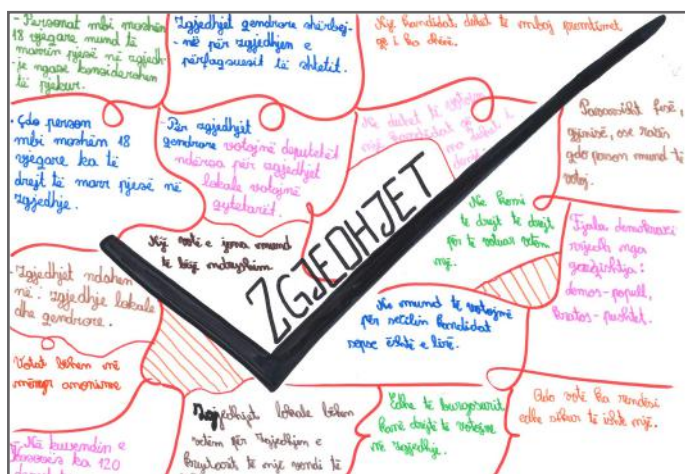 - Personat mbi moshën
18 vjeçare mund të
marrin pjesë në zgjedh-
je ngase konsiderohen
të pjekur.
Zgjedhjet qendrore shërbej-
në për zgjedhjen e
përfaqsuesit të shtetit.
Një kandidat duhet të mbaj premtimet
që i ka dhënë.
- Çdo person
mbi moshën 18
vjeçare ka të
drejt të marr pjesë në
zgjedhje.
- Për zgjedhjet
qendrore votojnë deputetët
ndërsa për zgjedhjet
lokale votojnë
qytetarët.
Ne duhet të votojm
një kandidat që
Pavarsisht fesë,
gjinisë, ose racës
çdo person mund të
votoj.
Një votë e jona mund
të bëjë ndryshim.
ZGJEDHJET
Ne kemi
të drejt të drejt
për të votuar vetëm
një.
Fjala demokraci
rrjedh nga
greqishtja:
demos-popull,
kratos-pushtet.
- Zgjedhjet ndahen
në: zgjedhje lokale
dhe qendrore.
Ne mund të votojmë
për secilin kandidat
sepse është e lirë.
Votat bëhen në
mënyr anonime
Zgjedhjet lokale bëhen
vetëm për zgjedhjen e
kryetarit të një vendi të
Edhe të burgosurit
kanë drejtë të votojne
në zgjedhje.
Çdo votë ka rëndësi
edhe sikur të ishte një.
- Në kuvendin e
Kosovës ka 120